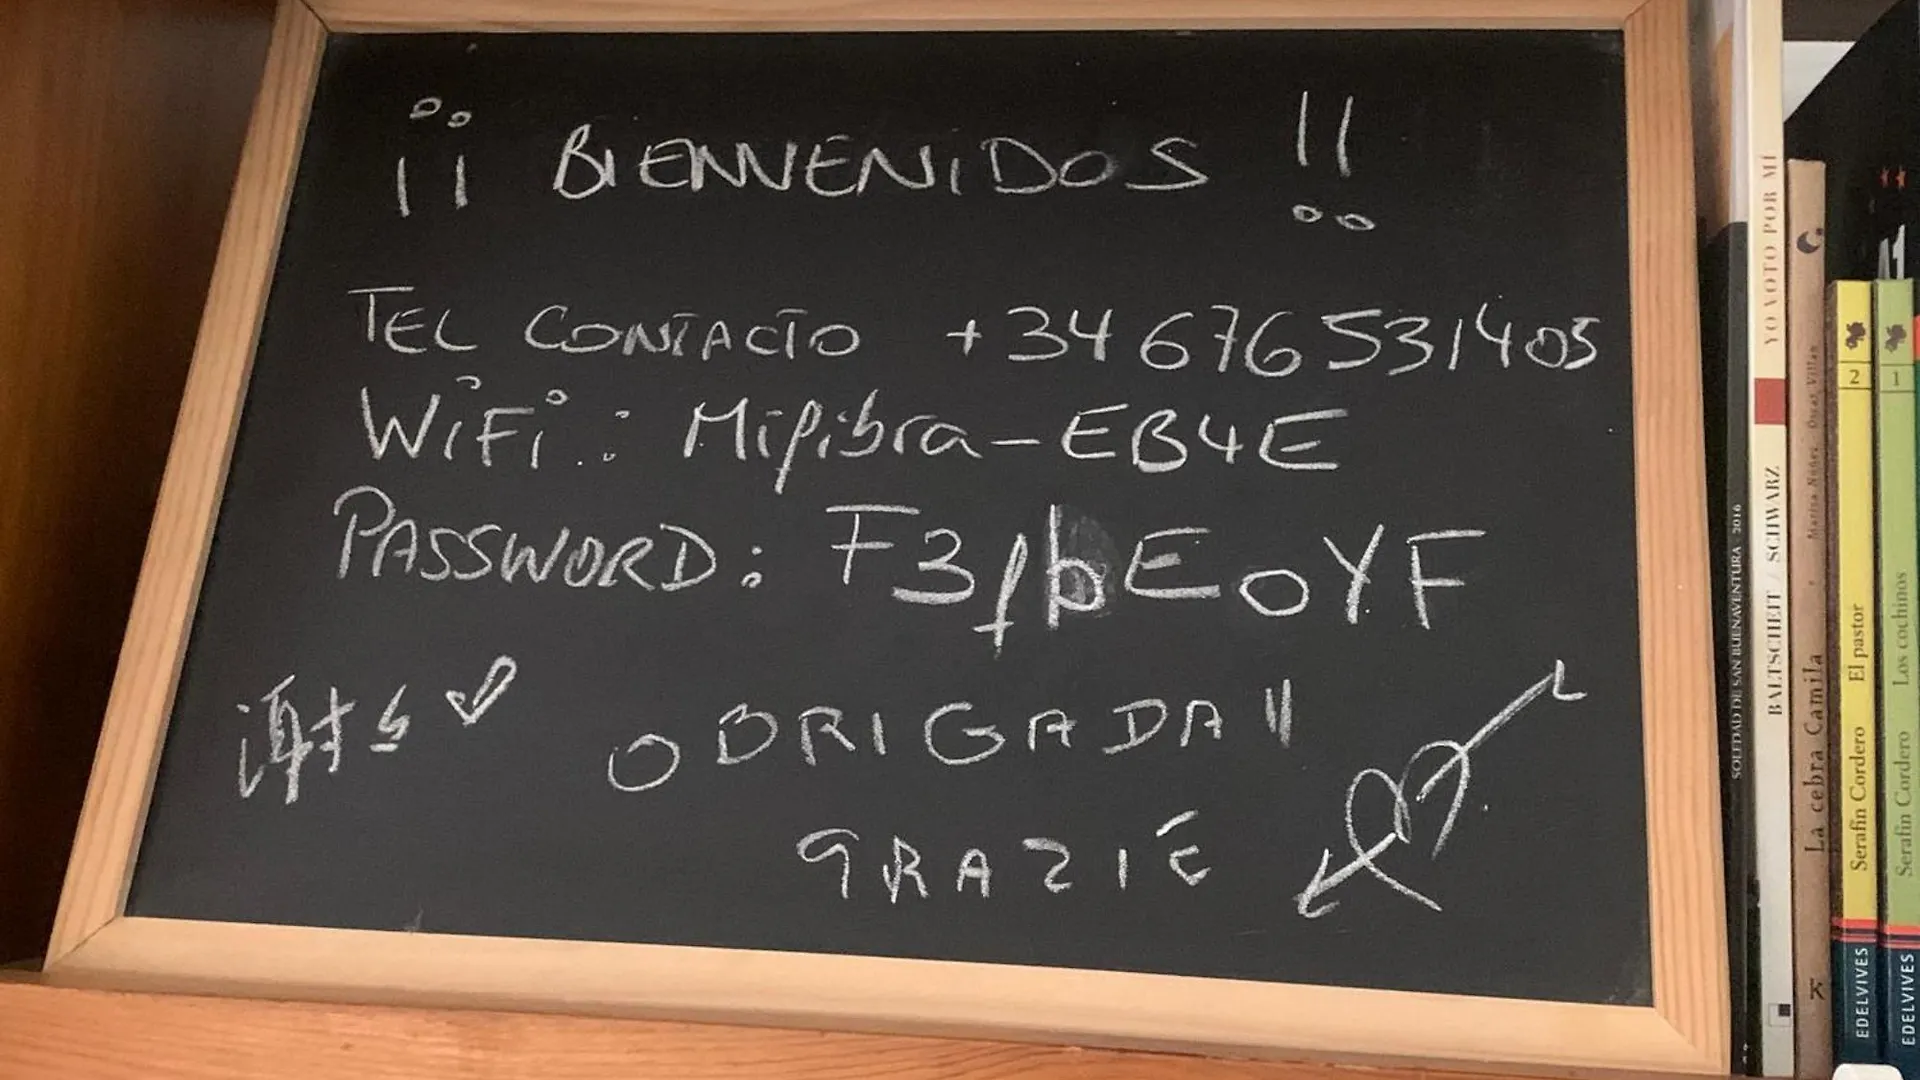 ¡¡ BIENVENIDOS !!
TEL CONTACTO +34 676531405
WiFi: Mifibra-EB4E
PASSWORD: F3fbEoYF
谢
OBRIGADA!!
GRAZIE
SOLEDAD DE SAN BUENAVENTURA 2016
BALTSCHEIT / SCHWARZ YO VOTO POR MÍ
La cebra Camila Marisa Núñez Óscar Villán
K
Serafín Cordero El pastor 2
EDELVIVES
Serafín Cordero Los cochinos 1
EDELVIVES